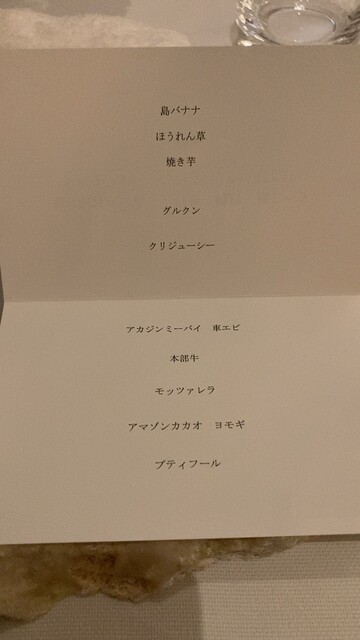 島バナナ
ほうれん草
焼き芋
グルクン
クリジューシー
アカジンミーバイ　車エビ
本部牛
モッツァレラ
アマゾンカカオ　ヨモギ
プティフール